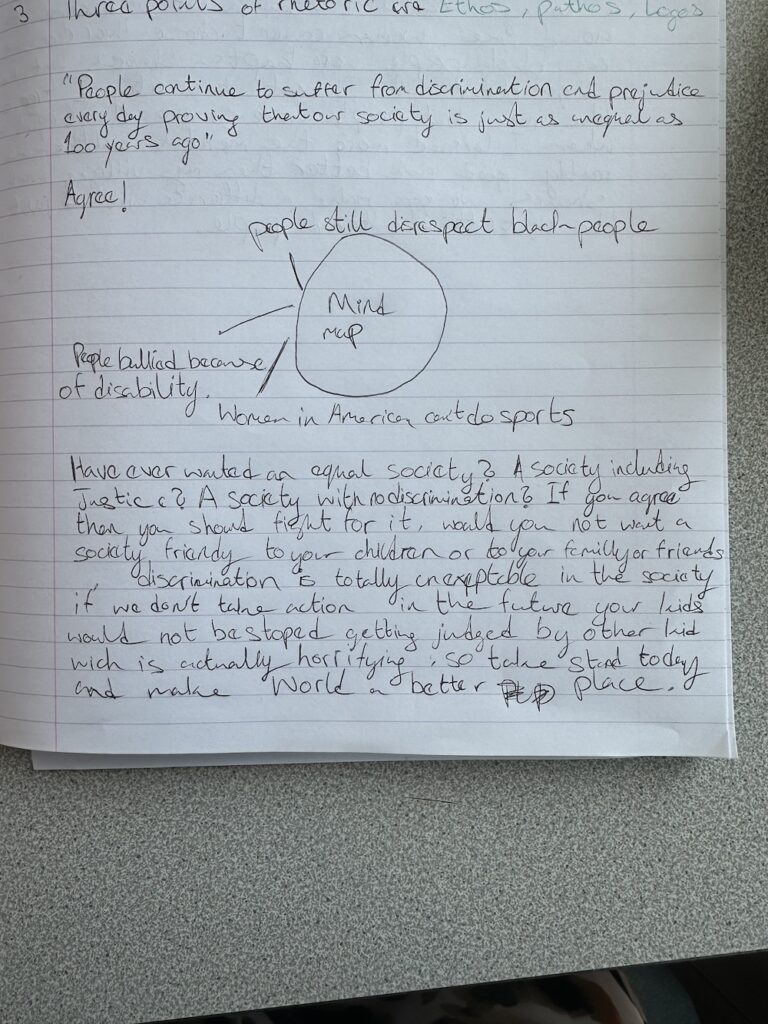 3 Three points of rhetoric are Ethos, pathos, Logos
"People continue to suffer from discrimination and prejudice
every day proving that our society is just as unequal as
100 years ago"
Agree!
people still disrespect black people
Mind
map
People bullied because
of disability.
Women in American can't do sports
Have ever wanted an equal society? A society including
Justice? A society with no discrimination? If you agree
then you should fight for it, would you not want a
society friendy to your children or to your familly or friends
, discrimination is totally unexeptable in the society
if we don't take action in the future your kids
would not be stoped getting judged by other kid
wich is actually horrifying, so take stand today
and make World a better place.